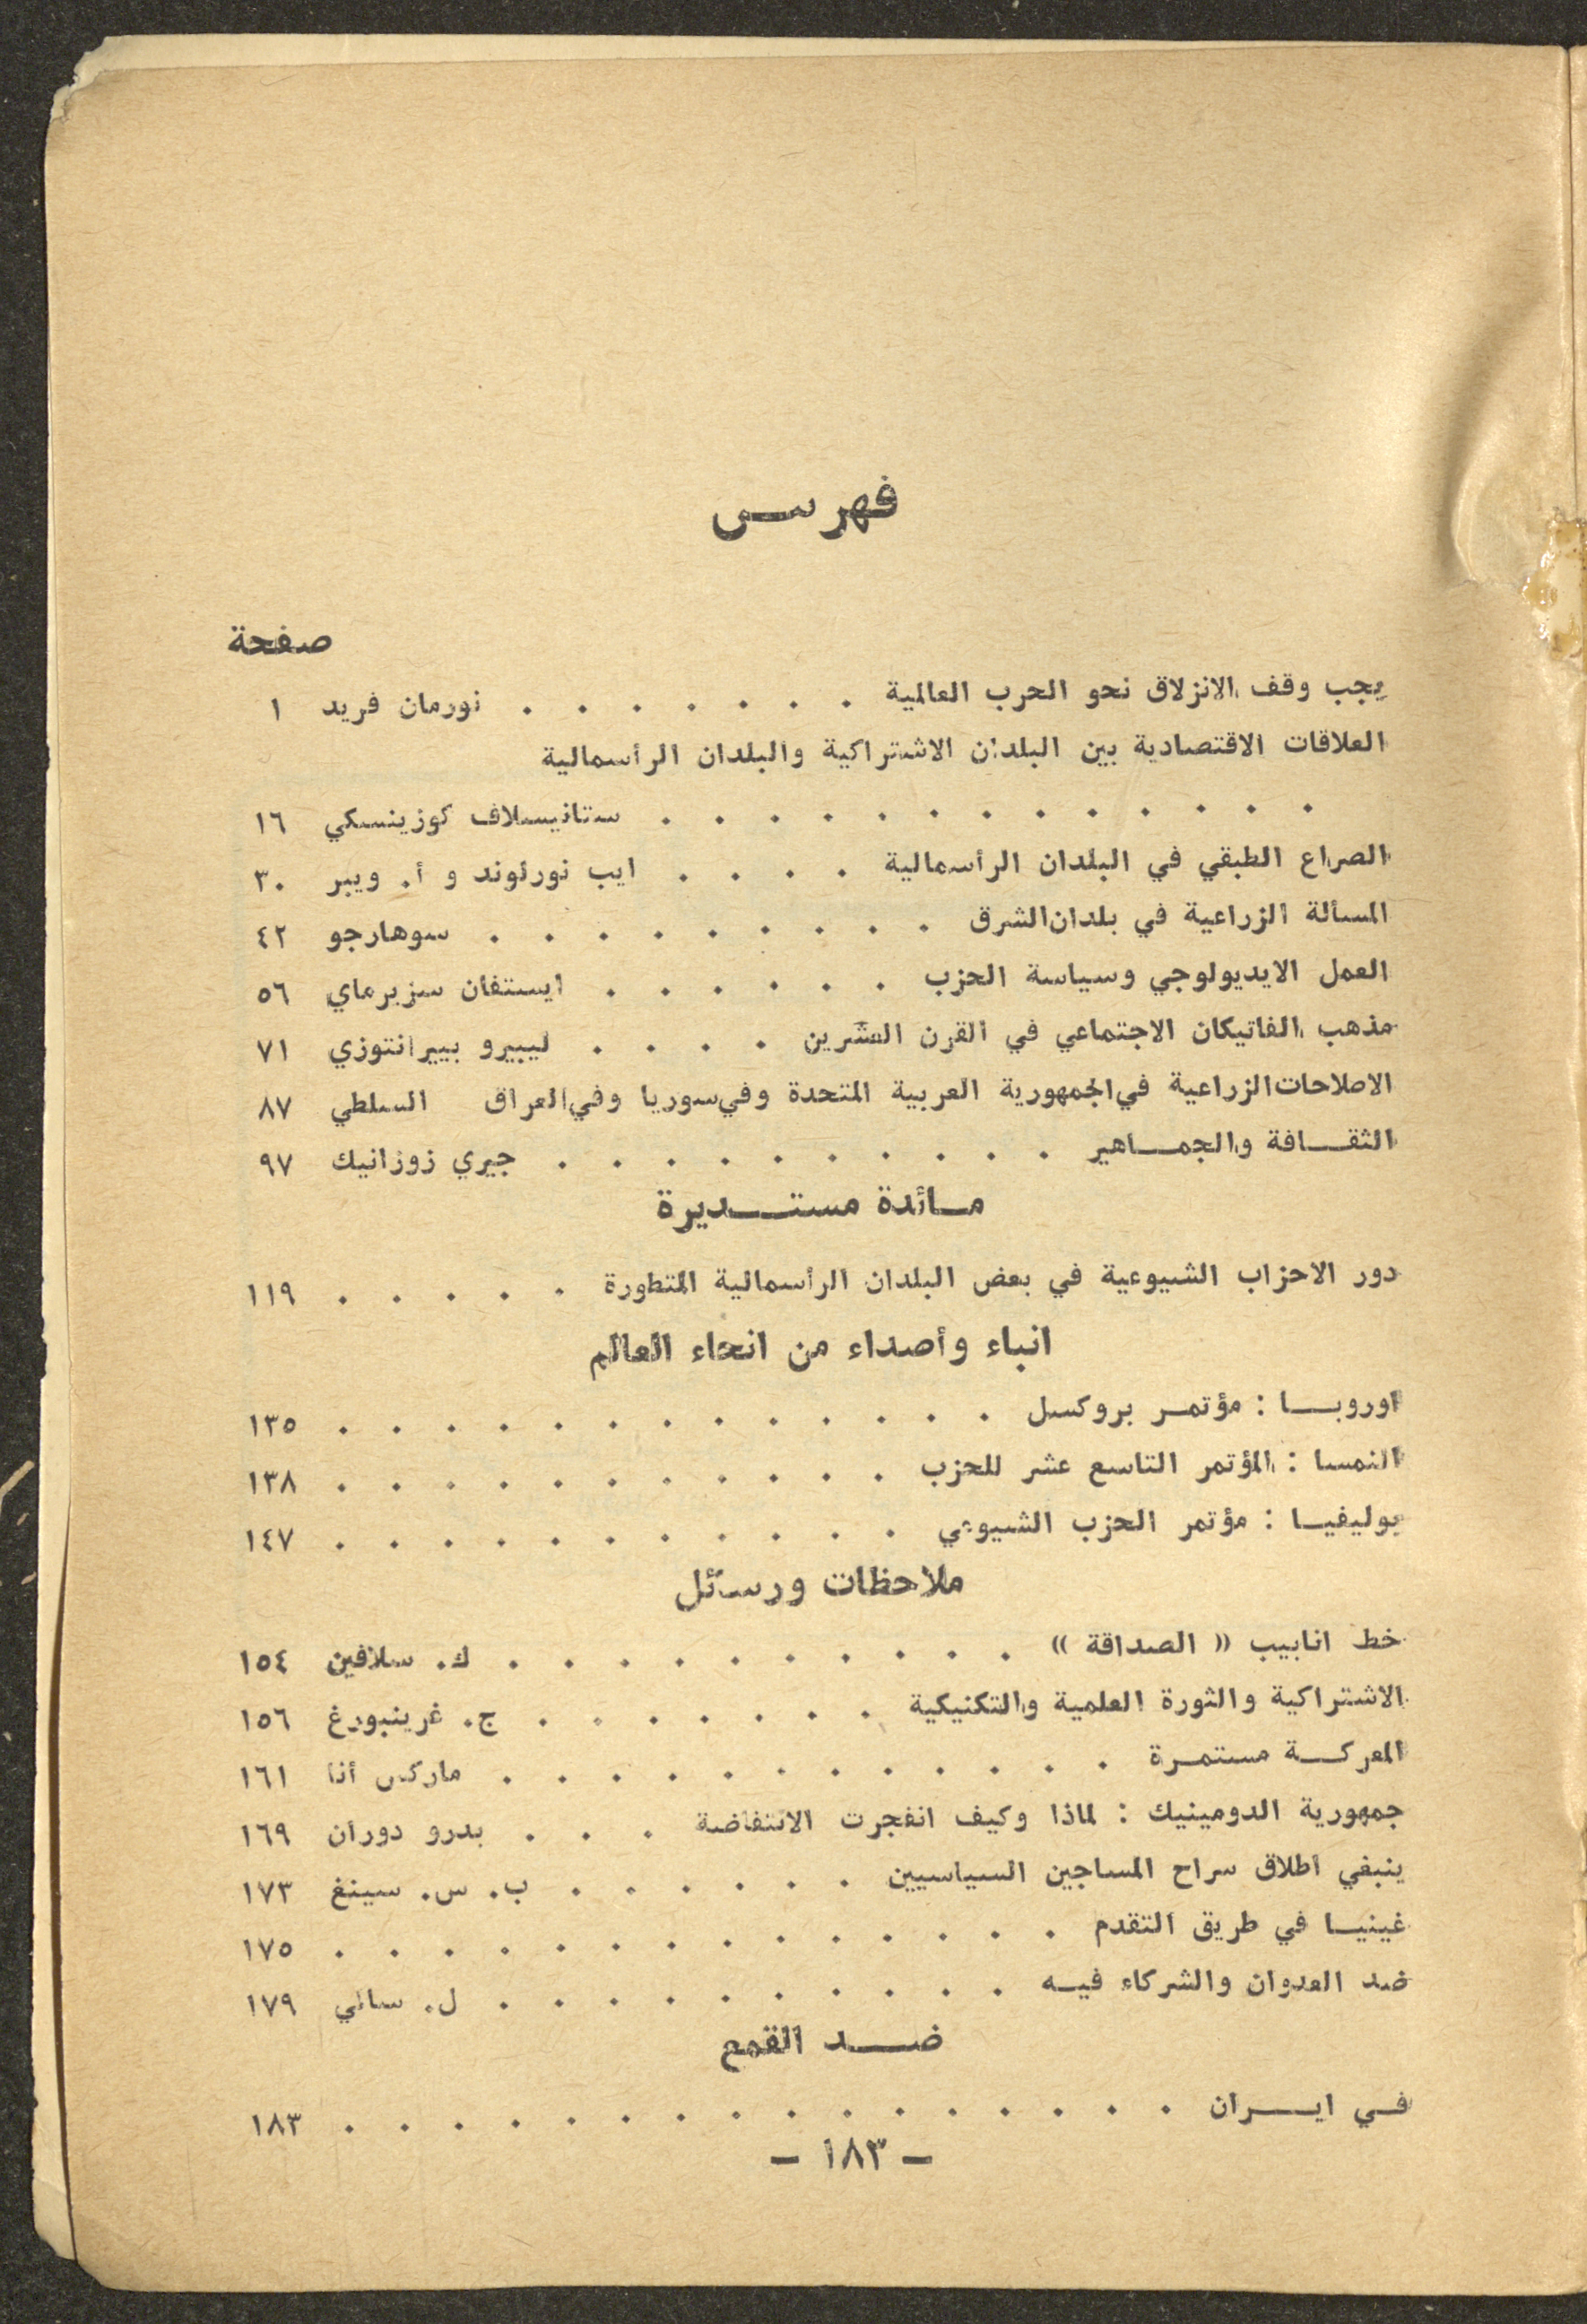 فهرس
صفحة
يجب وقف الانزلاق نحو الحرب العالمية . . . . . . . نورمان فريد ١
العلاقات الاقتصادية بين البلدان الاشتراكية والبلدان الرأسمالية
. . . . . . . . . . . . . ستانيسلاف كوزينسكي ١٦
الصراع الطبقي في البلدان الرأسمالية . . . . ايب نورلوند و أ. ويبر ٣٠
المسألة الزراعية في بلدان الشرق . . . . . . . . . سوهارجو ٤٢
العمل الايديولوجي وسياسة الحزب . . . . . . ايستفان سزيرماي ٥٦
مذهب الفاتيكان الاجتماعي في القرن العشرين . . . . ليبيرو بييرانتوزي ٧١
الاصلاحات الزراعية في الجمهورية العربية المتحدة وفي سوريا وفي العراق السلطي ٨٧
الثقافة والجماهير . . . . . . . . . . جيري زوزانيك ٩٧
مائدة مستديرة
دور الاحزاب الشيوعية في بعض البلدان الرأسمالية المتطورة . . . . . ١١٩
انباء وأصداء من انحاء العالم
اوروبا : مؤتمر بروكسل . . . . . . . . . . . . . ١٣٥
النمسا : المؤتمر التاسع عشر للحزب . . . . . . . . . . . ١٣٨
بوليفيا : مؤتمر الحزب الشيوعي . . . . . . . . . . . ١٤٧
ملاحظات ورسائل
خط انابيب « الصداقة » . . . . . . . . . . ك. سلافين ١٥٤
الاشتراكية والثورة العلمية والتكنيكية . . . . . . . ج. غرينبورغ ١٥٦
المعركة مستمرة . . . . . . . . . . . . ماركس أنا ١٦١
جمهورية الدومينيك : لماذا وكيف انفجرت الانتفاضة . . . بدرو دوران ١٦٩
ينبغي اطلاق سراح المساجين السياسيين . . . . . . ب. س. سينغ ١٧٣
غينيا في طريق التقدم . . . . . . . . . . . . . . ١٧٥
ضد العدوان والشركاء فيه . . . . . . . . . . ل. سالي ١٧٩
ضد القمع
في ايران . . . . . . . . . . . . . . . . ١٨٣
– ١٨٣ –